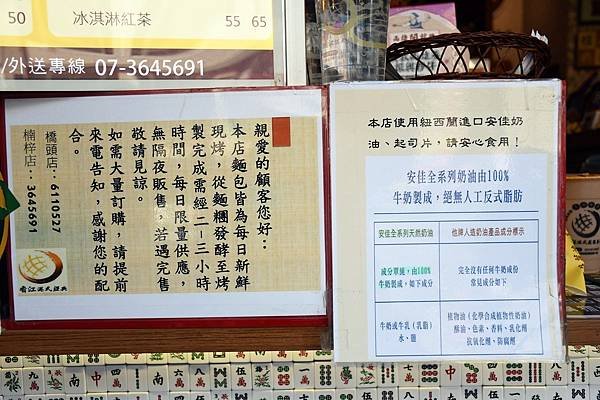 50
冰淇淋紅茶 55 65
/外送專線 07-3645691
親愛的顧客您好：
本店麵包皆為每日新鮮
現烤，從麵糰發酵至烤
製完成需經二－三小時
時間，每日限量供應，
無隔夜販售，若遇完售
敬請見諒。
如需大量訂購，請提前
來電告知，感謝您的配
合。
橋頭店：6110527
楠梓店：3645691
香江港式經典
本店使用紐西蘭進口安佳奶
油、起司片，請安心食用！
安佳全系列奶油由100%
牛奶製成，絕無人工反式脂肪
安佳全系列天然奶油
他牌人造奶油產品成分標示
成分單純，由100%
牛奶製成，如下成分
完全沒有任何牛奶成份
常見成分如下
牛奶或牛乳（乳脂）
水、鹽
植物油（化學合成植物性奶油）
酥油、色素、香料、乳化劑
抗氧化劑、防腐劑